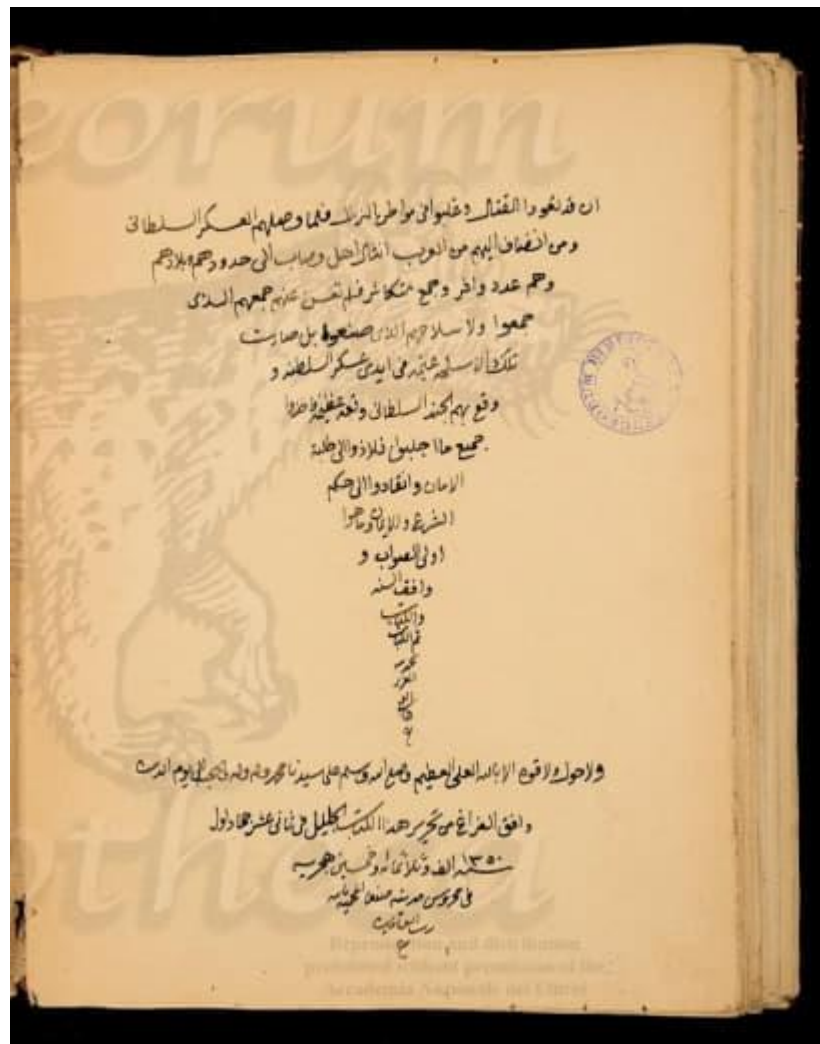 ان قد تعودوا القتال وغلبوا في مواطن بالترك فلما وصلهم العسكر السلطاني
ومن انضاف اليهم من العرب امثال اهل وصاب الى حدودهم وبلادهم
وهم عدد وافر وجمع متكاثر فلم تغن عنهم جمعهم الذي
جمعوا ولا سلاحهم الذي صنعوه بل صارت
تلك الاسلحه غنيمه في ايدي عسكر السلطنه و
وقع بهم الجند السلطاني وقعه عظيمه
جميع ما جلبوا فلاذوا الى طلبة
الامان وانقادوا الى حكم
الشرع
اولى الصواب و
وافق السنه
والكتاب
تم الكتاب
ولا حول ولا قوة الا بالله العلي العظيم وصلى الله وسلم على سيدنا محمد واله وصحبه الى يوم الدين
وافق الفراغ من تحرير هذا الكتاب الجليل في ثاني عشر جماد اول
سنه ١٣٥٠ الف وثلاثمائه وخمسين هجريه
في محروس مدينه صنعا المحميه بالله
رب العالمين
eorum
otheca
Reproduction and distribution
prohibited without permission of the
Accademia Nazionale dei Lincei